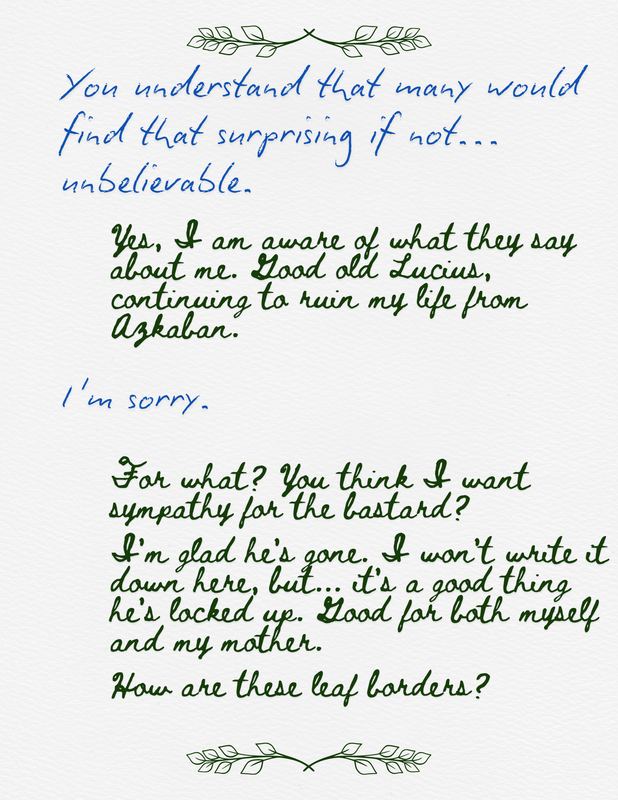 You understand that many would
find that surprising if not...
unbelievable.
Yes, I am aware of what they say
about me. Good old Lucius,
continuing to ruin my life from
Azkaban.
I'm sorry.
For what? You think I want
sympathy for the bastard?
I'm glad he's gone. I won't write it
down here, but... it's a good thing
he's locked up. Good for both myself
and my mother.
How are these leaf borders?